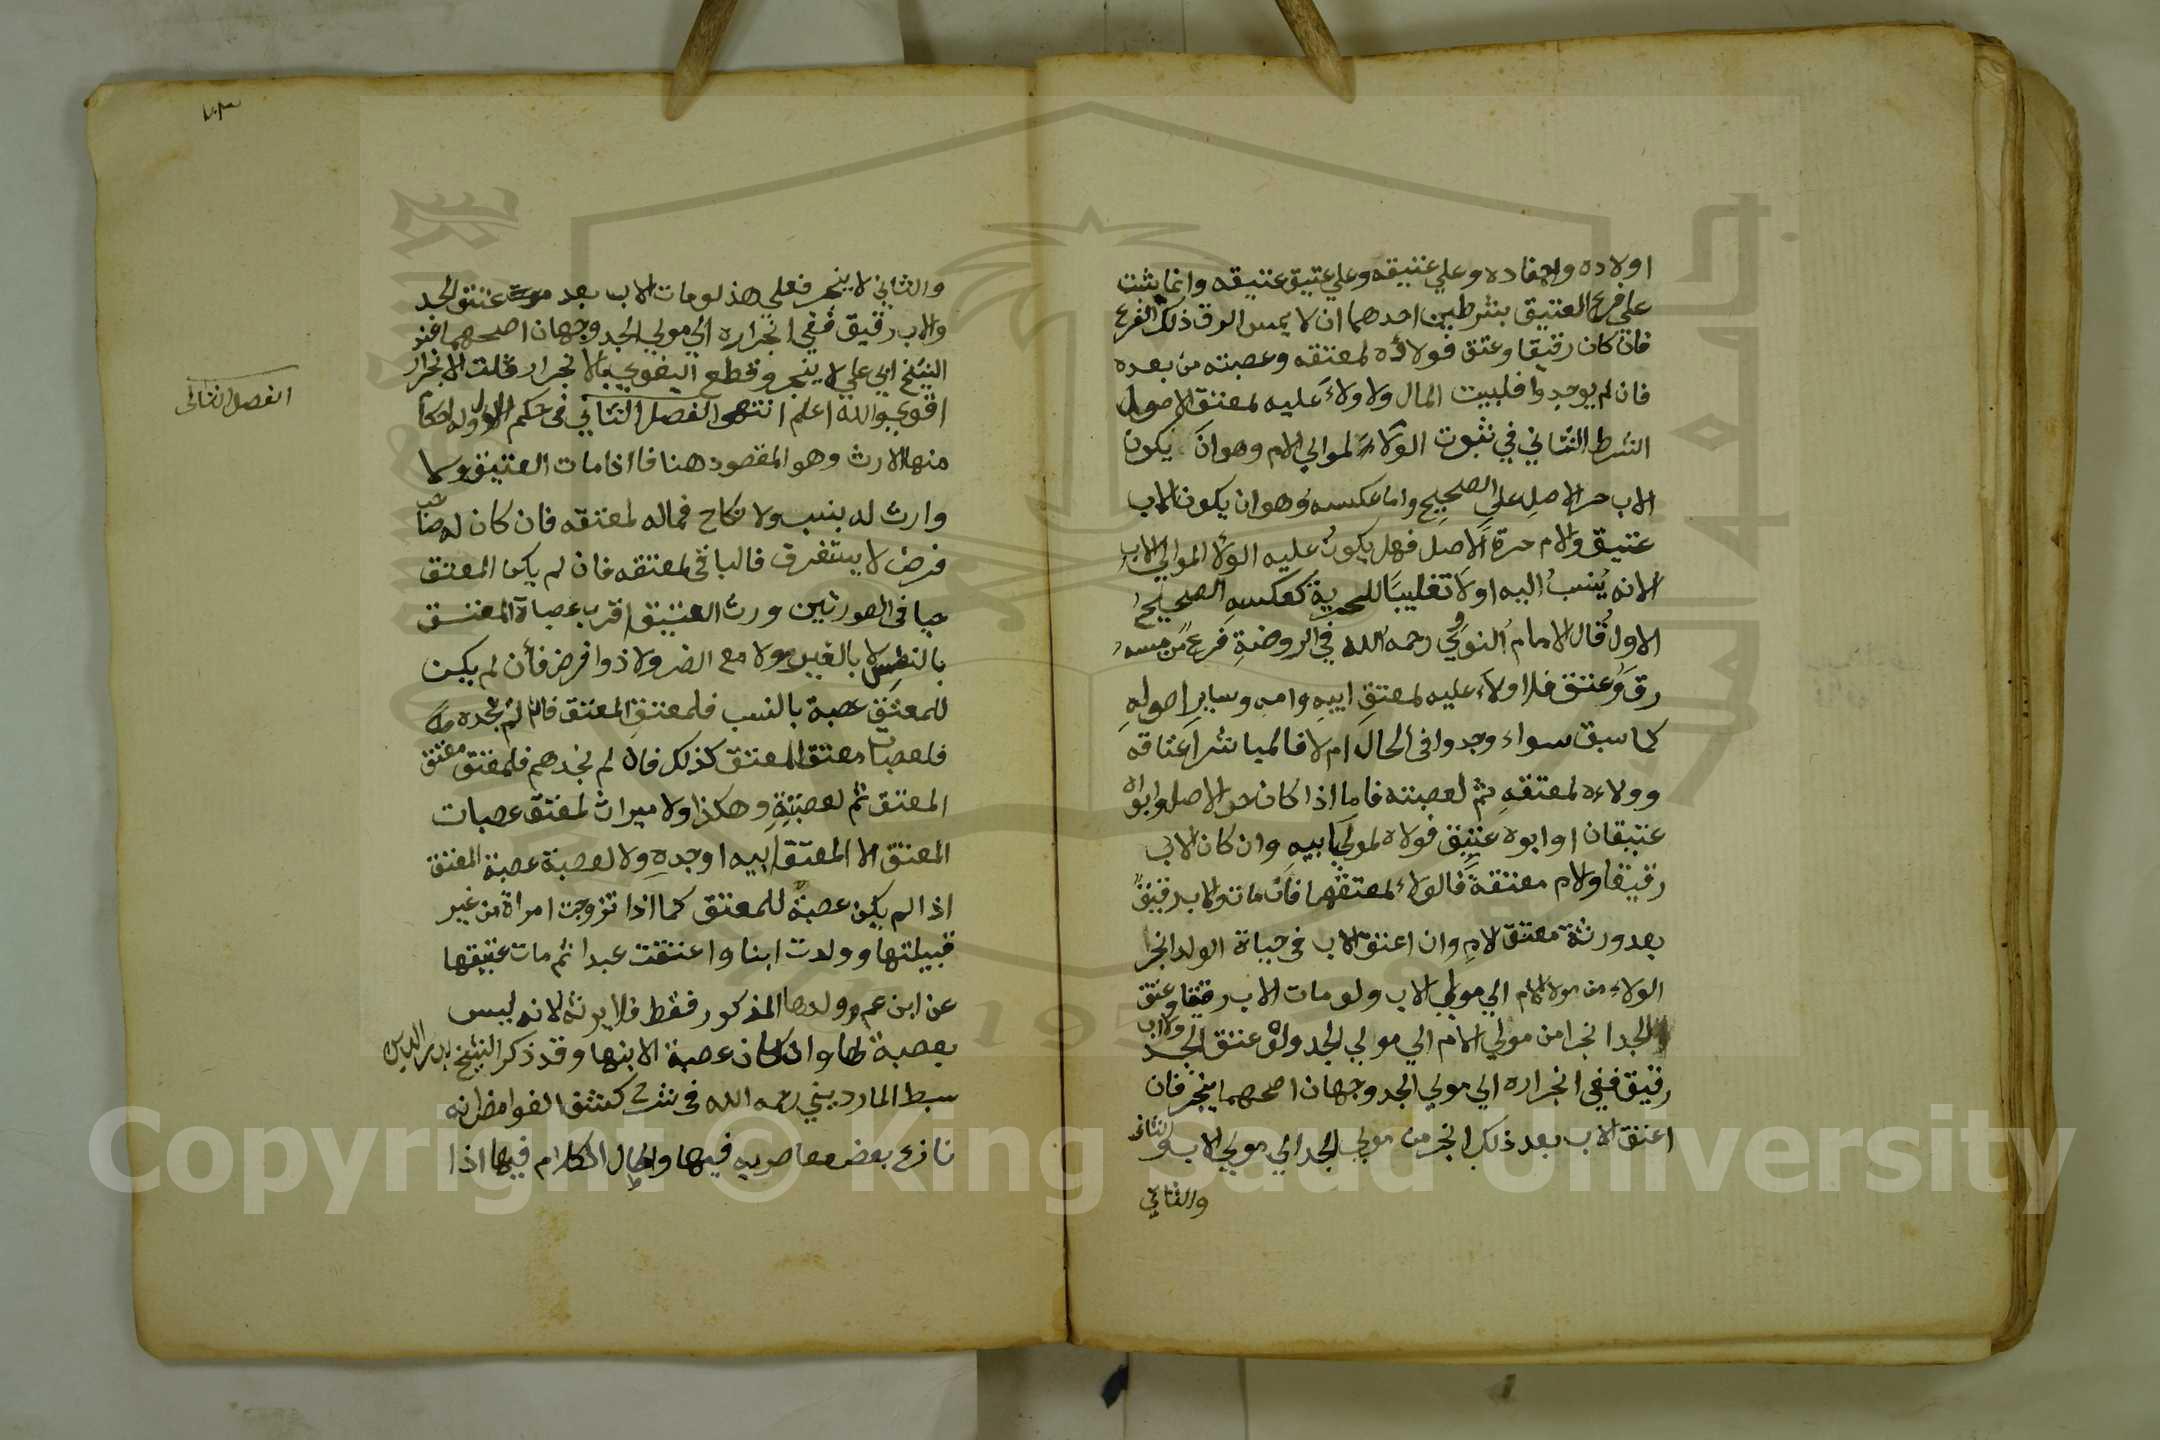 اولاده واحفاده وعلي عتيقه وعلي عتيق عتيقه وانما يثبت
علي فرع العتيق بشرطين احدهما ان لا يمس الرق ذلك الفرع
فان كان رقيقا وعتق فولاؤه لمعتقه وعصبته من بعده
فان لم يوجدوا فلبيت المال ولا ولاء عليه لمعتق الاصول
الشرط الثاني في ثبوت الولاء لموالي الام وهو ان يكون
الاب حر الاصل علي الصحيح واما عكسه وهو ان يكون الاب
عتيق والام حرة الاصل فهل يكون عليه الولا لموالي الاب
لانه ينسب اليه اولا تغليبا للحرية كعكسه الصحيح
الاول قال الامام النووي رحمه الله في الروضة فرع من مسه
رق وعتق فلا ولاء عليه لمعتق ابيه وامه وساير اصوله
كما سبق سواء وجدوا في الحال ام لا فالمباشر اعتاقه
وولاءه لمعتقه ثم لعصبته فاما اذا كان حر الاصل وابواه
عتيقان او ابوه عتيق فولاه لمولي ابيه وان كان الاب
رقيقا والام معتقة فالولاء لمعتقها فان مات والاب رقيق
بعد ورثة معتق الام وان اعتق الاب في حياة الولد انجر
الولاء من موالي الام الي موالي الاب ولو مات الاب رقيقا وعتق
الجد انجر من مولي الام الي موالي الجد ولو عتق الجد والاب
رقيق ففي انجراره الي مولي الجد وجهان اصحهما ينجر فان
اعتق الاب بعد ذلك انجر من مولي الجد الي مولي الاب والثاني
والثاني
٧٣
والثاني لا ينجر فعلي هذ لو مات الاب بعد عتق الجد
والاب رقيق ففي انجراره الي مولي الجد وجهان اصحهما عند
الشيخ ابي علي لا ينجر وقطع البغوي بالانجرار قلت الانجرار
اقوي والله اعلم انتهى الفصل الثاني في حكم الولا وله احكام
الفصل الثاني
منها الارث وهو المقصود هنا فاذا مات العتيق ولا
وارث له بنسب ولا نكاح فماله لمعتقه فان كان له صاحب
فرض لا يستغرق فالباقي لمعتقه فان لم يكن المعتق
حيا في الصورتين ورث العتيق اقرب عصباة المعتق
بالنفس لا بالغير ولا مع الغير ولا ذوا فرض فأن لم يكن
للمعتق عصبة بالنسب فلمعتق المعتق فان لم نجده
فلعصبات معتق المعتق كذلك فان لم نجدهم فلمعتق معتق
المعتق ثم لعصبته وهكذا ولا ميراث لمعتق عصبات
المعتق الا المعتق ابيه او جده ولا لعصبة عصبة المعتق
اذا لم يكن عصبة للمعتق كما اذا تزوجت امراة من غير
قبيلتها وولدت ابنا واعتقت عبدا ثم مات عتيقها
عن ابن عم وولدها المذكور فقط فلا يرثه لانه ليس
بعصبة لها وان كان عصبة لابنها وقد ذكر الشيخ بدر الدين
سبط المارديني رحمه الله في شرح كشف الغوامض انه
نازع بعض معاصريه فيها واطال الكلام فيها اذا